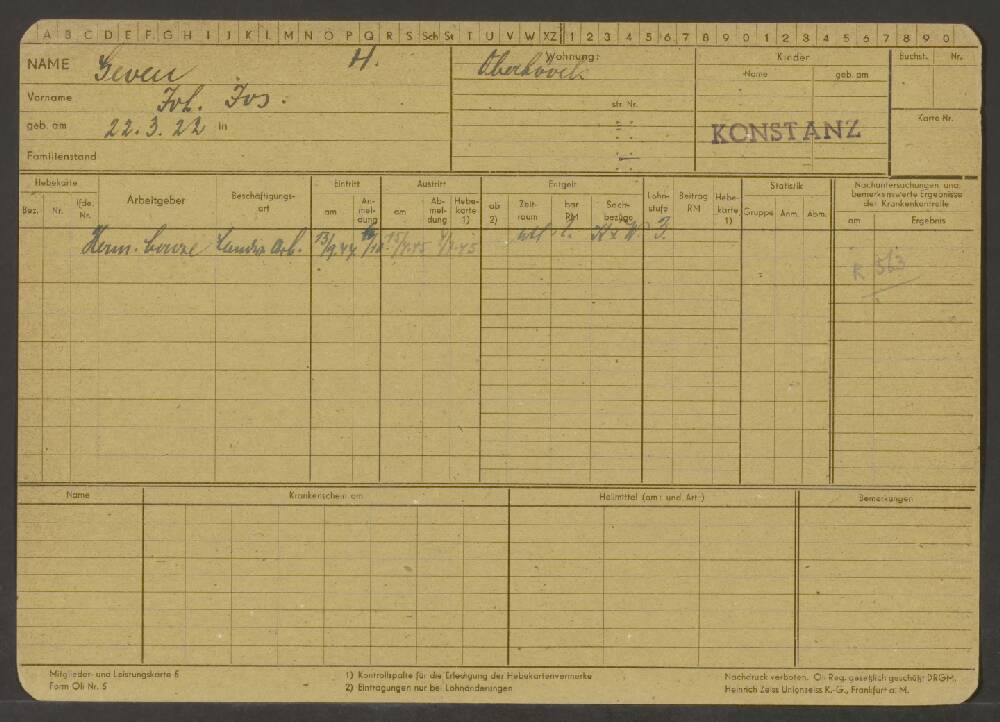 A B C D E F G H I J K L M N O P Q R S Sch St T U V W XZ 1 2 3 4 5 6 7 8 9 0 1 2 3 4 5 6 7 8 9 0
NAME Geven H.
Vorname Joh. Jos.
geb. am 22.3.22 in
Familienstand
Wohnung:
str. Nr.
Kinder
Name geb. am
KONSTANZ
Buchst. Nr.
Karte Nr.
Hebekarte Arbeitgeber Beschäftigungsart Eintritt Austritt Entgelt Lohnstufe Beitrag RM Hebekarte 1) Statistik Nachuntersuchungen und bemerkenswerte Ergebnisse der Krankenkontrolle
Bez. Nr. lfde. Nr. am Anmeldung am Abmeldung Hebekarte 1) ab 2) Zeitraum bar RM Sachbezüge Gruppe Anm. Abm. am Ergebnis
Herm. Landw. Arb. 3.
R 563
Name Krankenschein am Heilmittel (am: und Art:) Bemerkungen
Mitglieder- und Leistungskarte 5
Form Oli Nr. 5
1) Kontrollspalte für die Erledigung der Hebekartenvermerke
2) Eintragungen nur bei Lohnänderungen
Nachdruck verboten. Oli Reg. gesetzlich geschützt DRGM.
Heinrich Zeiss Unionzeiss K.-G., Frankfurt a. M.